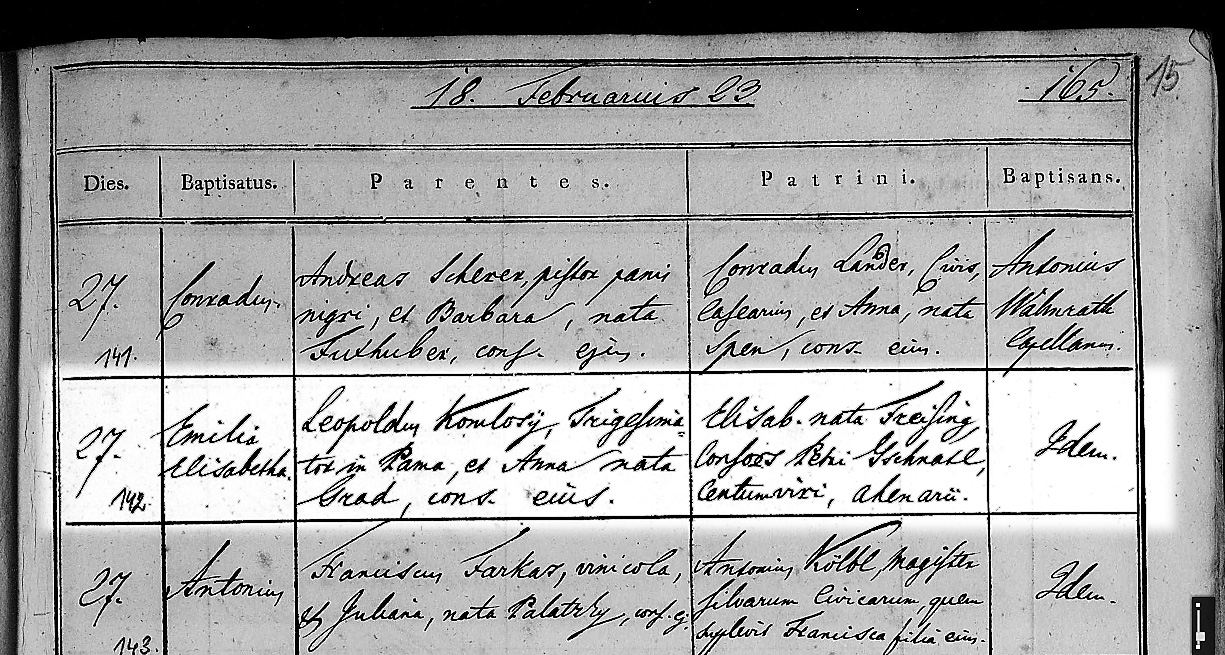 18. Februarius 23
165.
15
Dies.
Baptisatus.
Parentes.
Patrini.
Baptisans.
27.
141.
Conradus.
Andreas Scherer, pistor panis
nigri, et Barbara, nata
Fuxhuber, cons. ejus.
Conradus Lander, Civis,
Casearius, et Anna, nata
Spen, cons. eius.
Antonius
Walmrath
Capellanus.
27.
142.
Emilia
Elisabetha.
Leopoldus Komlosÿ, Trigesima=
tor in Pama, et Anna nata
Grad, cons. eius.
Elisab. nata Freising,
Consors Petri Gschnatl,
Centumviri, ahenarii.
Idem.
27.
143.
Antonius
Franciscus Farkas, vinicola,
et Juliana, nata Palatzky, cons. ej.
Antonius Kölbl, Magister
silvarum Civicarum, quem
supplevit Francisca filia eius.
Idem.